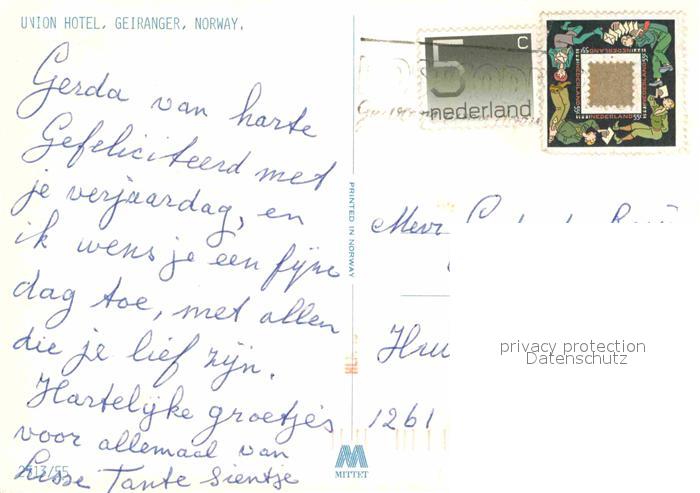 UNION HOTEL, GEIRANGER, NORWAY.
Gerda van harte
Gefeliciteerd met
je verjaardag, en
ik wens je een fijne
dag toe, met allen
die je lief zijn.
Hartelijke groetjes
voor allemaal van
Tante Sientje
2513/55
PRINTED IN NORWAY
MITTET
5 c
nederland
NEDERLAND 55
NEDERLAND 55
NEDERLAND 55
NEDERLAND 55
Mevr
1261
privacy protection
Datenschutz